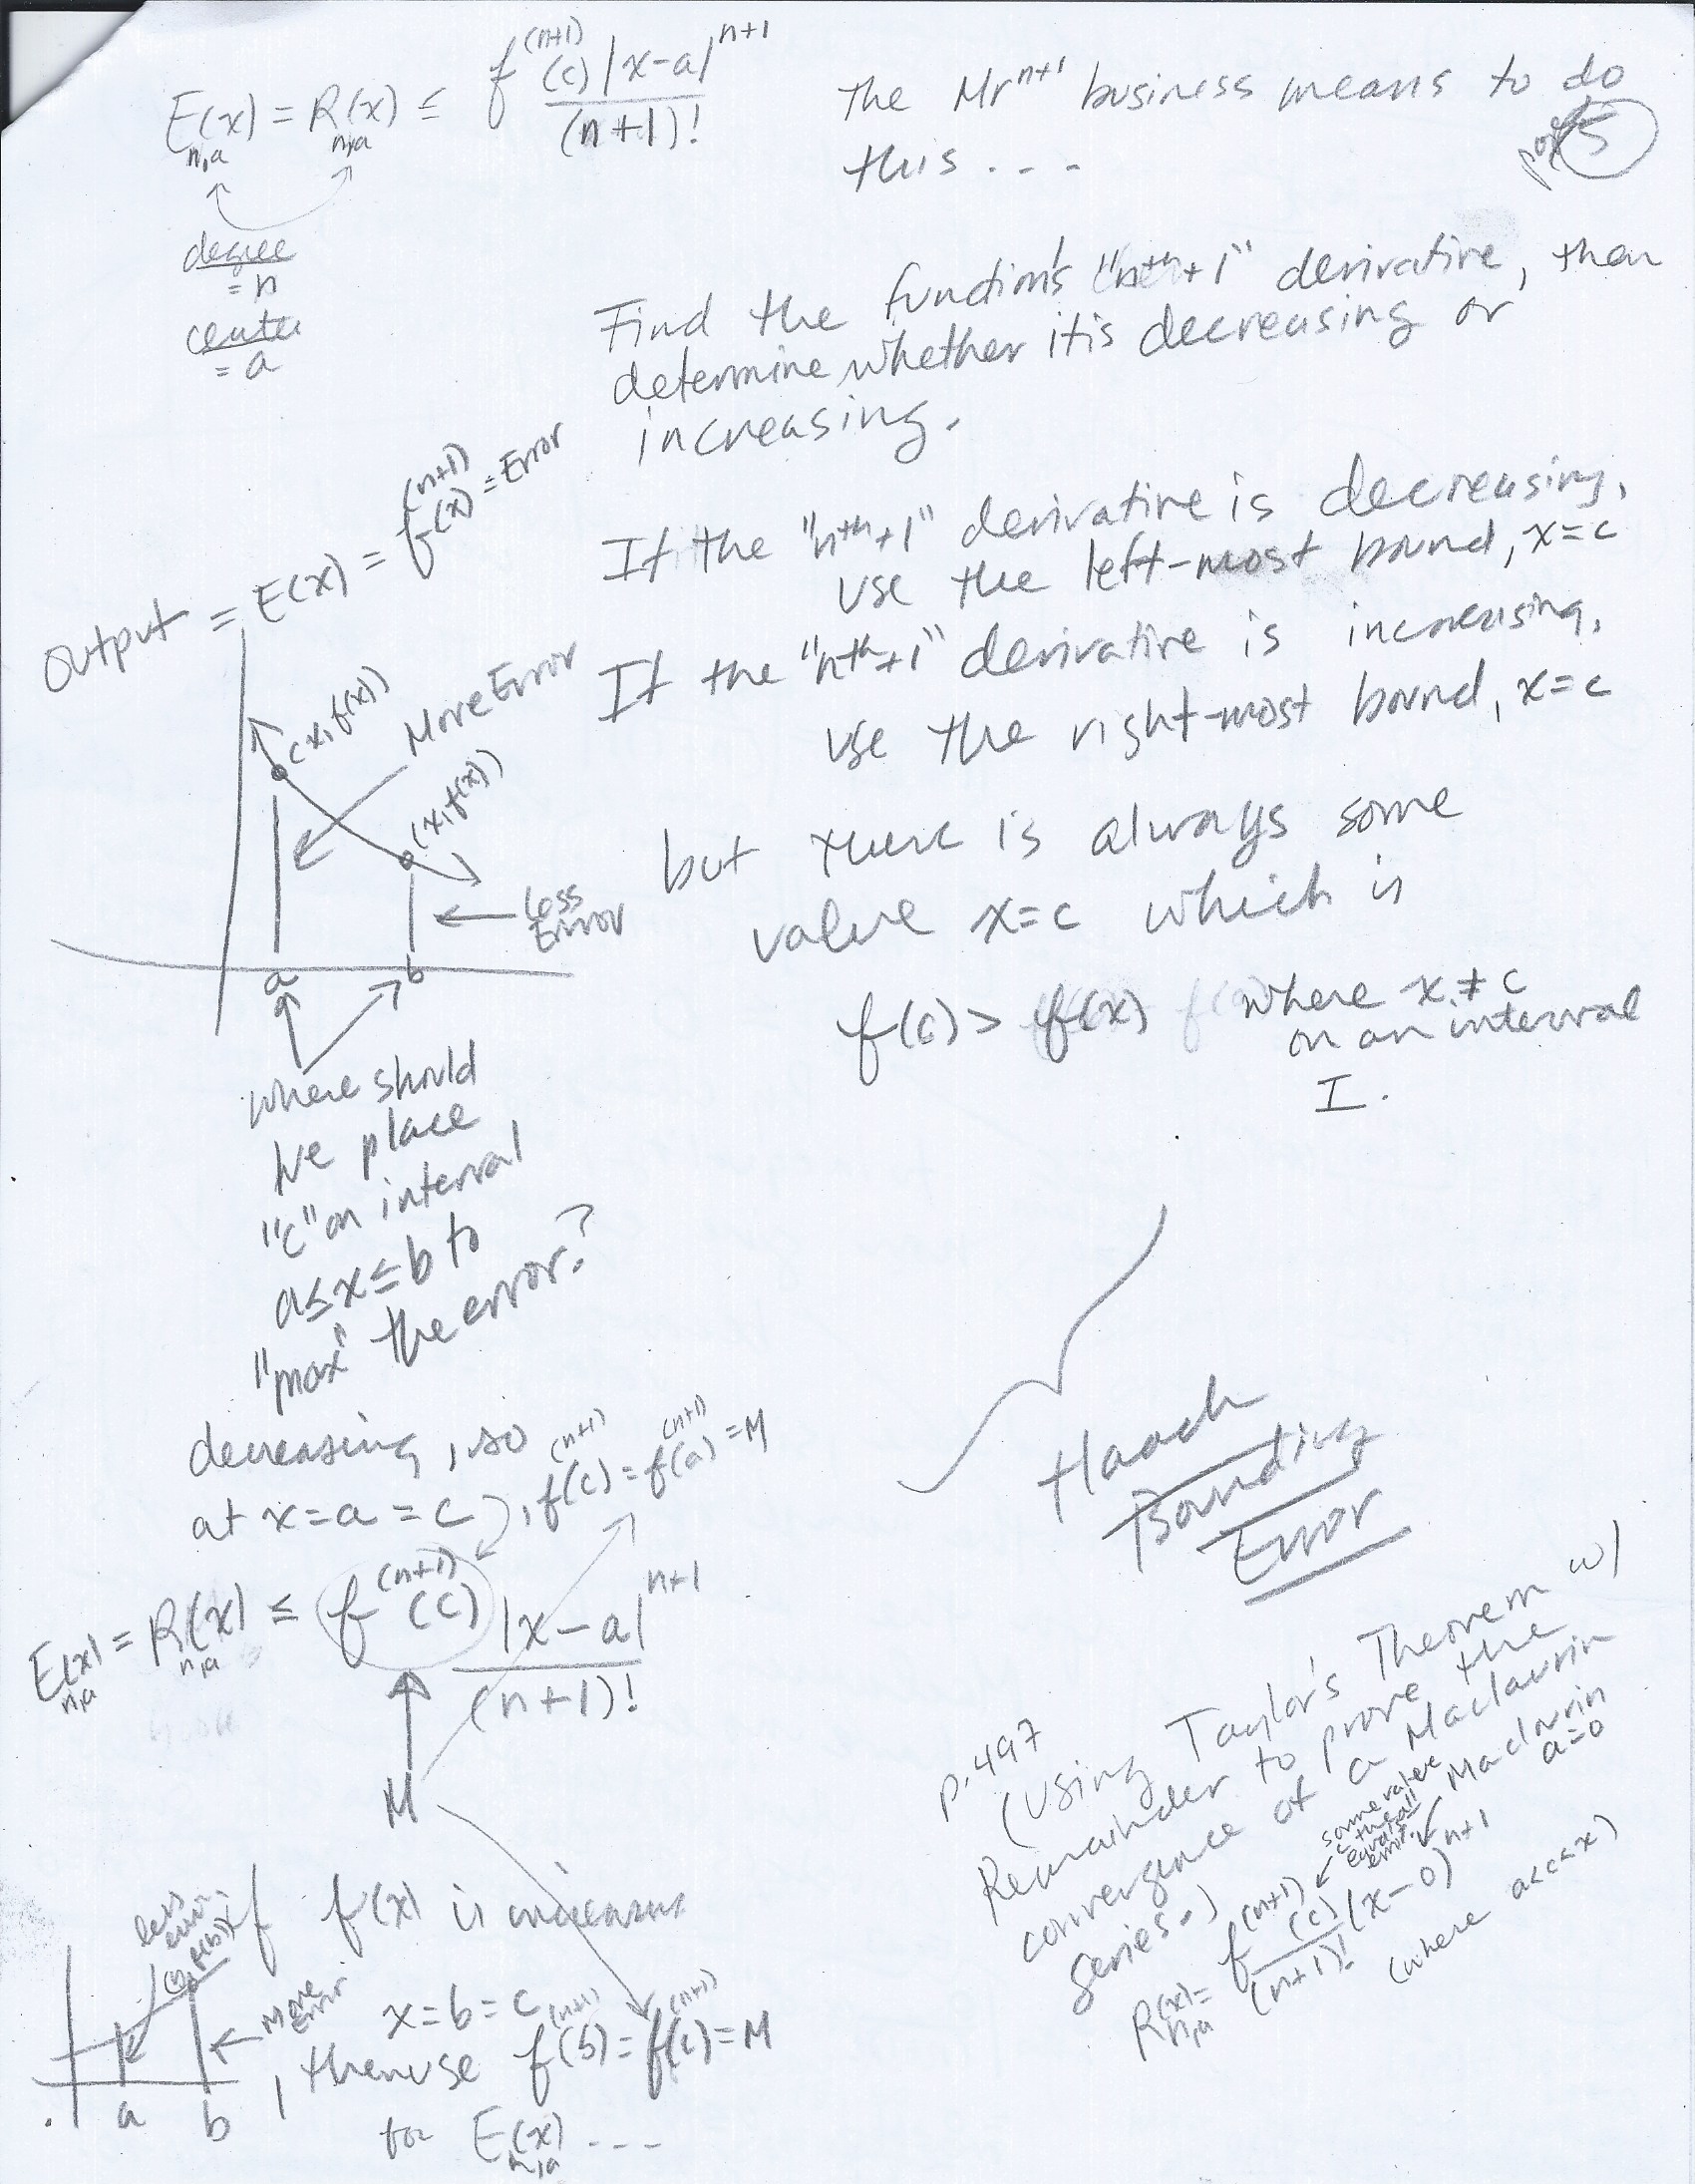 E(x) = R(x) ≤ f^(n+1)(c) |x-a|^n+1
n,a n,a (n+1)!
degree
= n
center
= a
The Mr^n+1 business means to do
this . . .
5
Find the function's "n^th+1" derivative, then
determine whether it is decreasing or
increasing.
If the "n^th+1" derivative is decreasing,
use the left-most bound, x=c
If the "n^th+1" derivative is increasing,
use the right-most bound, x=c
but there is always some
value x=c which is
f(c) > f(x) where x ≠ c
on an interval
I.
Output = E(x) = f^(n+1)(x) = Error
(x, f(x))
More Error
(x, f(x))
Less
Error
a b
where should
we place
"c" on interval
a≤x≤b to
"max" the error?
decreasing, so
at x=a=c, f^(n+1)(c) = f^(n+1)(a) = M
E(x) = R(x) ≤ f^(n+1)(c) |x-a|^n+1
n,a n,a (n+1)!
M
if f(x) is increasing
less
error
f(b)
More
Error
a b
x=b=c
, then use f^(n+1)(b) = f^(n+1)(c) = M
for E(x) - - -
n,a
Bounding
Error
p.497
(Using Taylor's Theorem w/
Remainder to prove the
convergence of a Maclaurin
series.)
Maclaurin
a=0
some value
c
equals all
error.
R(x) = f^(n+1)(c) (x-0)^n+1
n,a (n+1)!
(where a<c<x)